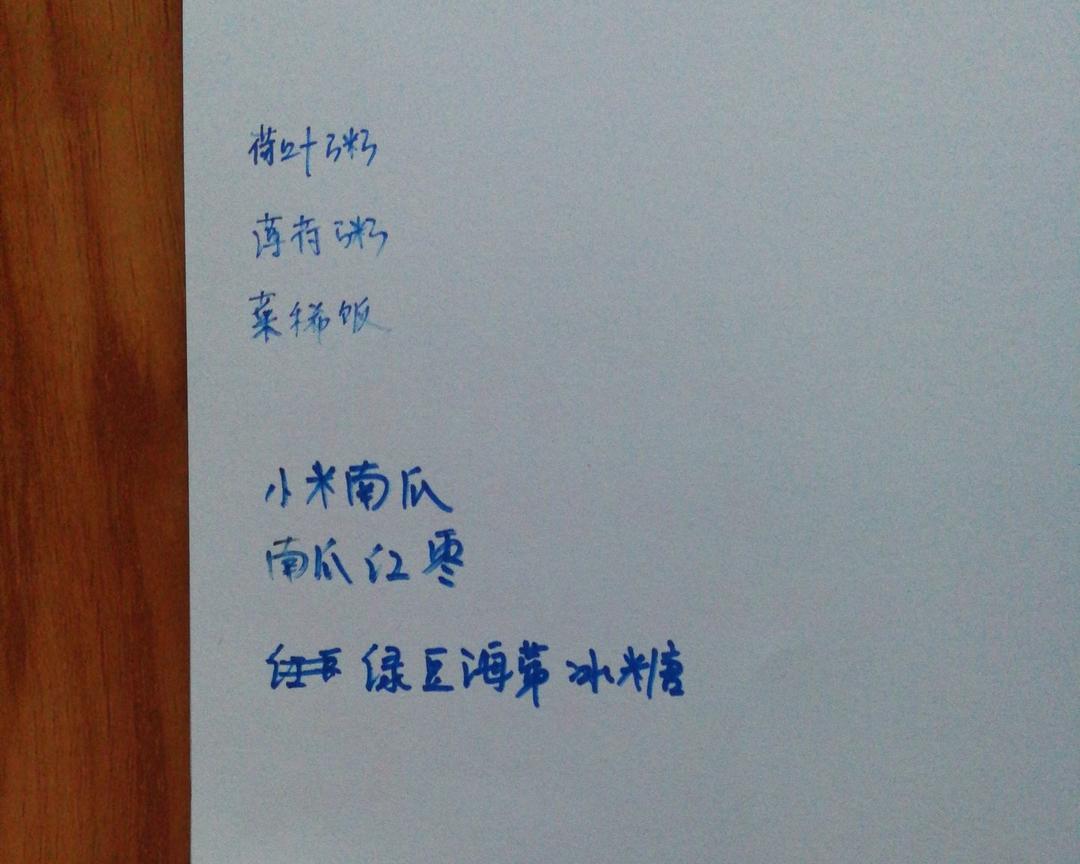 荷叶粥
薄荷粥
菜稀饭
小米南瓜
南瓜红枣
红豆 绿豆海带冰糖